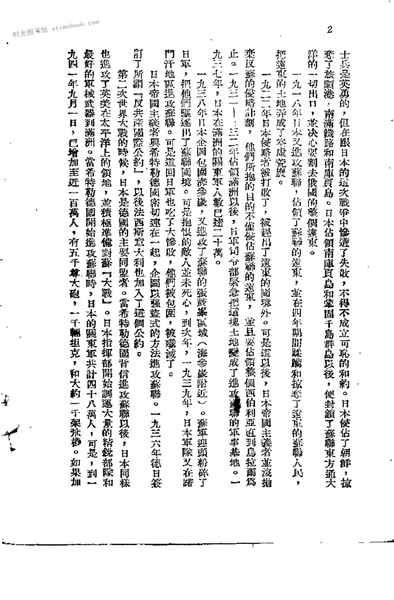 2
士兵是英勇的，但在跟日本的這次戰爭中慘遭了失敗，不得不成立可恥的和約。日本侵佔了朝鮮，掠
奪了旅順港，南滿鐵路和南庫頁島。日本佔領南庫頁島和鞏固千島群島以後，便封鎖了蘇聯東方通大
洋的一切出口，並決心要割去俄國的整個遠東。
一九一八年日本又進攻蘇聯，佔領了蘇聯的遠東，並在四年期間蹂躪和掠奪了遠東的蘇聯人民，
把遠東的土地弄成了
一九二二年日本侵略者被打敗了，被趕出了遠東的國境外。可是這以後，日本帝國主義者並沒拋
棄反蘇的侵略計劃，他們所抱的目的不僅是佔蘇聯的遠東，並且要佔領整個西伯利亞直到烏拉爾為
止。一九三一—三二年佔領滿洲以後，日軍司令部緊急把這塊土地變成了進攻蘇聯的軍事基地。一
九三七年，日本在滿洲的關東軍人數已達二十萬。
一九三八年日本企圖包圍海參崴，又進攻了蘇聯的張鼓峯區域（海參崴附近）。蘇軍迎頭粉碎了
日軍，把他們驅逐出了蘇聯國境。可是抱恨的敵人並未死心，到次年，一九三九年，日本軍隊又在諾
門汗地區進攻蘇聯。可是這回日軍也吃了大慘敗，他們被包圍，被殲滅了。
日本帝國主義者與希特勒德國密切連在一起，企圖以強盜式的方法進攻蘇聯。一九三六年德日簽
訂了所謂「反共產國際公約」，以後法西斯意大利也加入了這個公約。
第二次世界大戰的時候，日本是德國的主要同盟者。當希特勒德國背信進攻蘇聯以後，日本同樣
也進攻了英美在太平洋上的領地，並積極準備對蘇「大戰」。日本指揮部開始調運大量的精銳部隊和
最好的軍械武器到滿洲。當希特勒德國開始進攻蘇聯時，日本的關東軍共計四十八萬人，可是，到一
九四一年九月一日，已增加至近一百萬人，有五千尊大砲，一千輛坦克，和大約一千架飛機。如果加